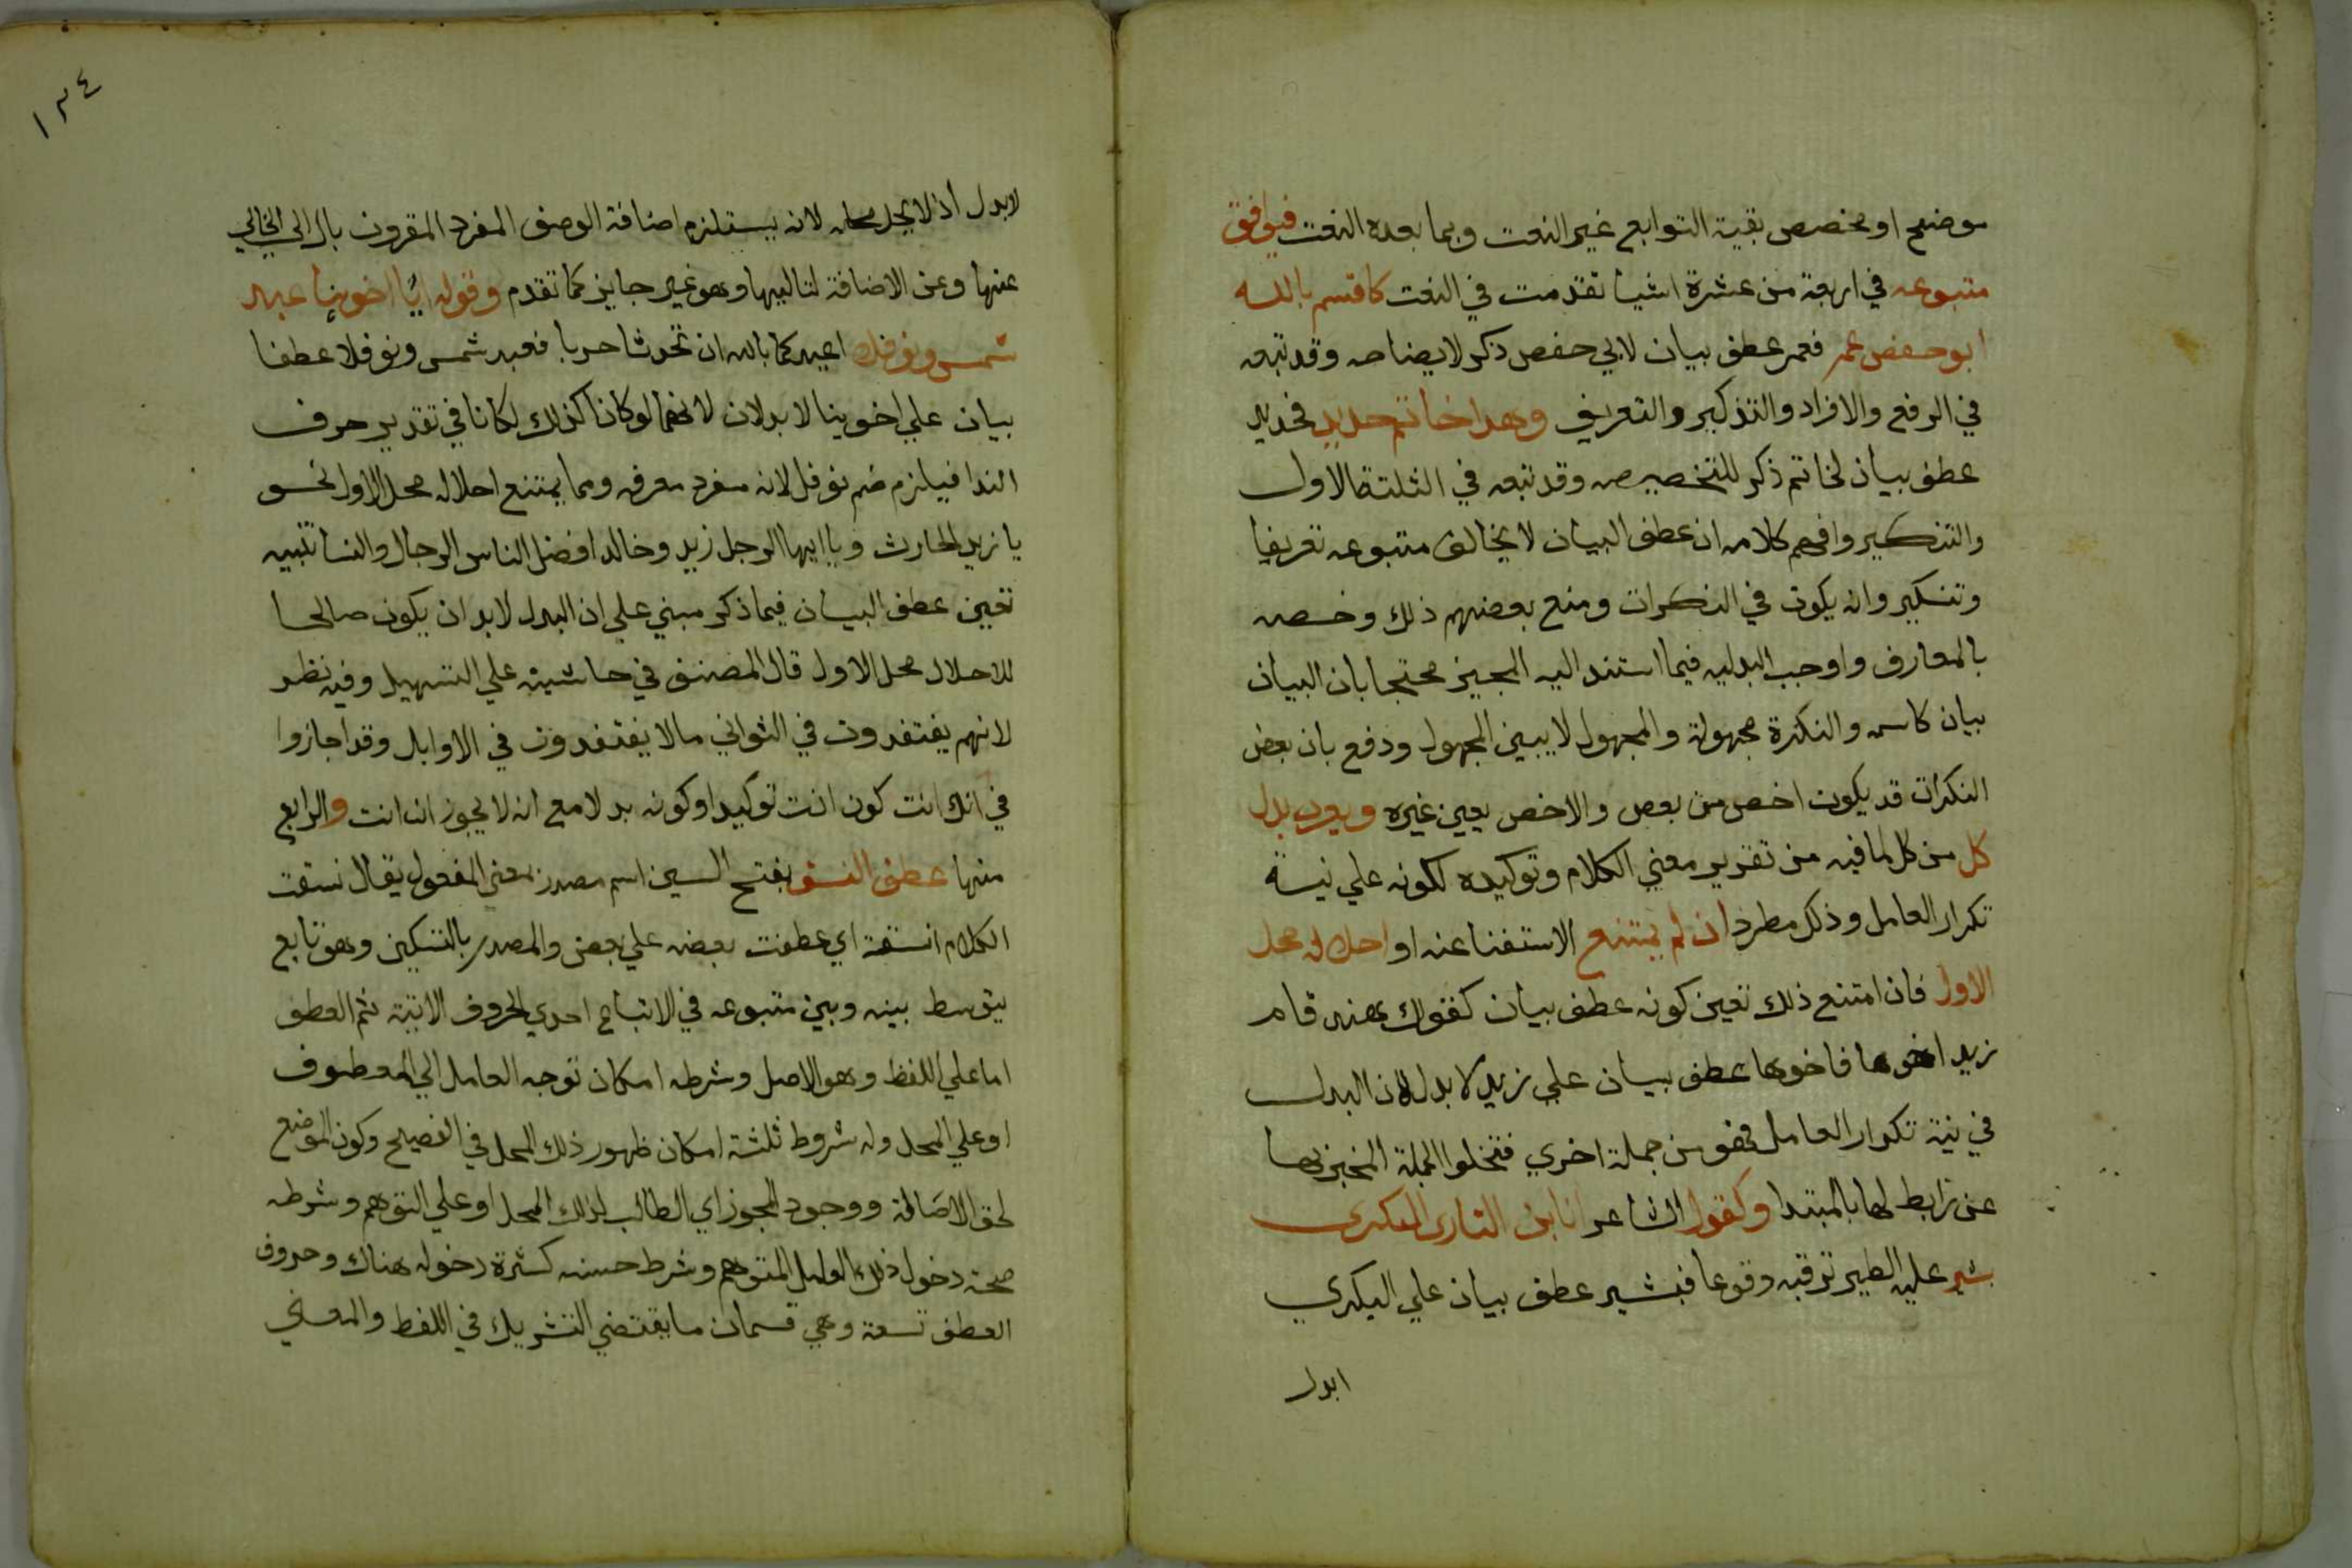 موضح او مخصص بقية التوابع غير النعت وبما بعده النعت فيوافق
متبوعه في اربعة من عشرة اشيا تقدمت في النعت كاقسم بالله
ابو حفص عمر فعمر عطف بيان لابي حفص ذكر لايضاحه وقد تبعه
في الرفع والافراد والتذكير والتعريف وهذا خاتم حديد فحديد
عطف بيان لخاتم ذكر للتخصيصه وقد تبعه في الثلثة الاول
والتنكير وافهم كلامه ان عطف البيان لا يخالف متبوعه تعريفا
وتنكير وانه يكون في النكرات ومنع بعضهم ذلك وخصه
بالمعارف واوجب البدليه فيما استند اليه المجيز محتجا بان البيان
بيان كاسمه والنكرة مجهولة والمجهول لا يبين المجهول ودفع بان بعض
النكرات قد يكون اخص من بعض والاخص يعين غيره ويعرب بدل
كل من كل لما فيه من تقرير معني الكلام وتوكيده لكونه علي نية
تكرار العامل وذلك مطرد ان لم يمتنع الاستغنا عنه او احلاله محل
الاول فان امتنع ذلك تعين كونه عطف بيان كقولك هند قام
زيد اخوها فاخوها عطف بيان علي زيد لا بدل لان البدل
في نية تكرار العامل فهو من جملة اخري فتخلوا الجملة المخبر بها
عن رابط لها بالمبتدا وكقول الشاعر انا ابن التارك البكري
بشر عليه الطير ترقبه وقوعا فبشير عطف بيان علي البكري
ابدل
١٣٤
لا بدل اذ لا يحل محله لانه يستلزم اضافة الوصف المفرد المقرون بال الي الخالي
عنها وعن الاضافة لتاليها وهو غير جايز كما تقدم وقوله ايا اخوينا عبد
شمس ونوفلا اعيذكما بالله ان تحدثا حربا فعبد شمس ونوفلا عطفا
بيان علي اخوينا لا بدلان لانهما لو كانا كذلك لكانا في تقدير حرف
الندا فيلزم ضم نوفل لانه مفرد معرفه ومما يمتنع احلاله محل الاول نحو
يا زيد الحارث ويا ايها الرجل زيد وخالد افضل الناس الرجال والنسا تنبيه
تعين عطف البيان فيما ذكر مبني علي ان البدل لا بد ان يكون صالحا
للاحلال محل الاول قال المصنف في حاشيته علي التسهيل وفيه نظر
لانهم يغتفرون في الثواني ما لا يغتفرون في الاوايل وقد اجازوا
في انك انت كون انت توكيدا وكونه بدلا مع انه لا يجوز ان انت والرابع
منها عطف النسق بفتح السين اسم مصدر بمعني المفعول يقال نسقت
الكلام انسقه اي عطفت بعضه علي بعض والمصدر بالتسكين وهو تابع
يتوسط بينه وبين متبوعه في الاتباع احدي الحروف الاتية ثم العطف
اما علي اللفظ وهو الاصل وشرطه امكان توجه العامل الي المعطوف
او علي المحل وله شروط ثلثة امكان ظهور ذلك المحل في الفصيح وكون الموضع
لحق الاصالة ووجود المجوز اي الطالب لذلك المحل او علي التوهم وشرطه
صحة دخول ذلك العامل المتوهم وشرط حسنه كثرة دخوله هناك وحروف
العطف تسعة وهي قسمان ما يقتضي التشريك في اللفظ والمعني